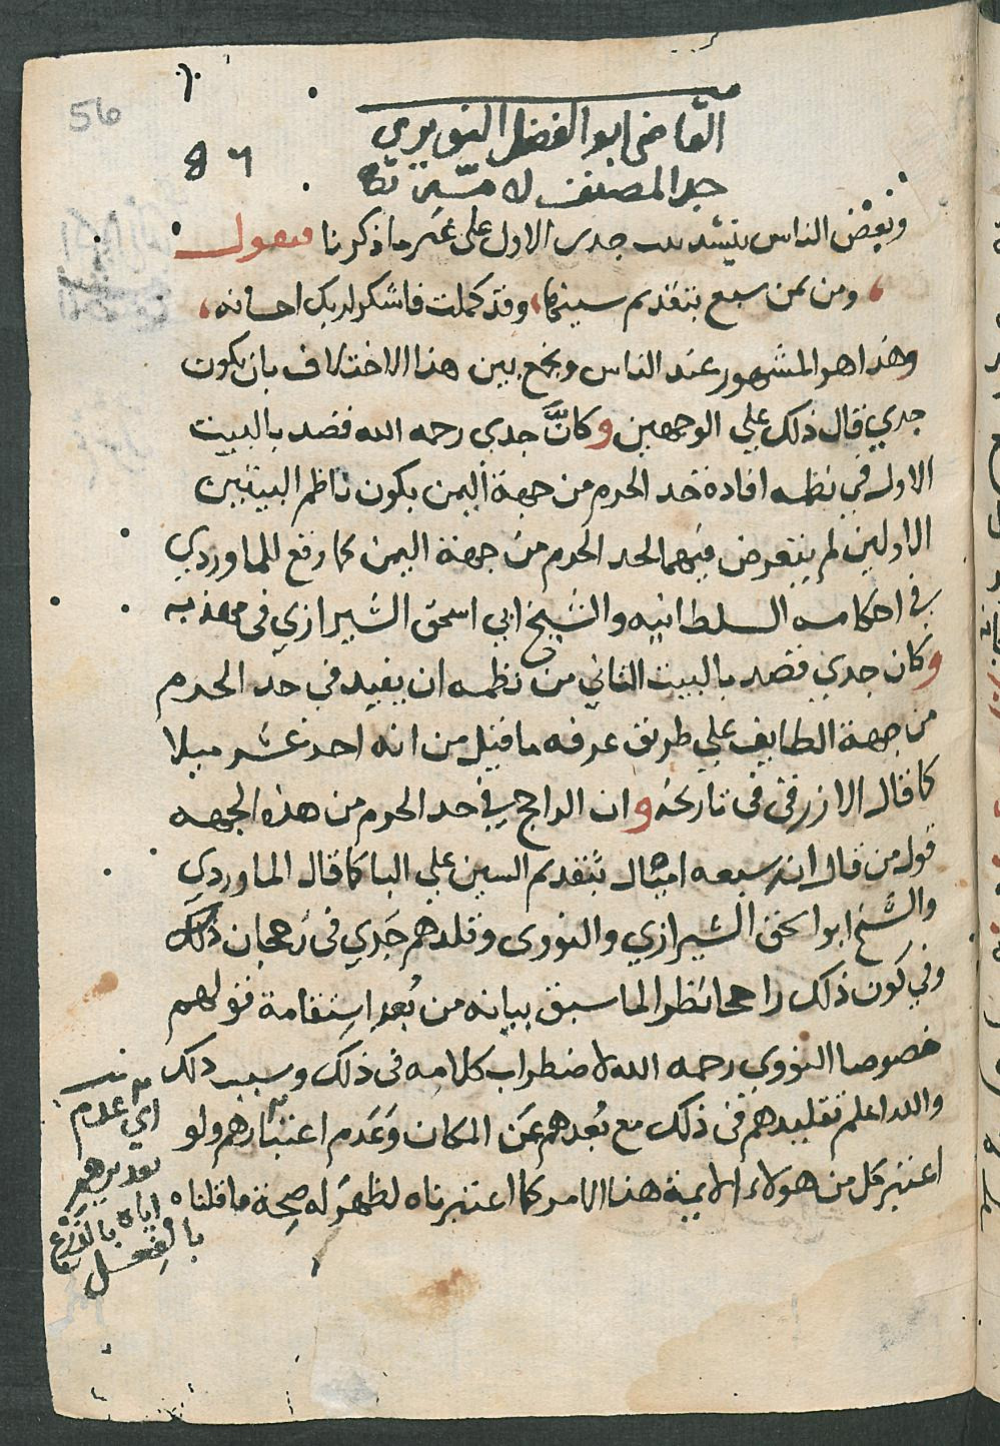 56
٨٦
القاضي ابو الفضل النويري
جد المصنف لامه
وبعض الناس ينشد بيت جدي الاول على غير ما ذكرنا فيقول
ومن يمن سبع بتقديم سينها، وقد كملت فاشكر لربك احسانه،
وهذا هو المشهور عند الناس ويجمع بين هذا الاختلاف بان يكون
جدي قال ذلك علي الوجهين وكانَّ جدي رحمه الله قصد بالبيت
الاول في نظمه افادة حد الحرم من جهة اليمن بكون ناظم البيتين
الاولين لم يتعرض فيهما لحد الحرم من جهة اليمن كما وقع للماوردي
في احكامه السلطانيه والشيخ ابي اسحق الشيرازي في مهذبه
وكان جدي قصد بالبيت الثاني من نظمه ان يفيد في حد الحرم
من جهة الطايف علي طريق عرفه ما قيل من انه احد عشر ميلا
كما قال الازرقي في تاريخه وان الراجح في حد الحرم من هذه الجهه
قول من قال انه سبعه اميال بتقديم السين علي البا كما قال الماوردي
والشيخ ابو اسحق الشيرازي والنووي وقلدهم جَدي في رجحان ذلك
وفي كون ذلك راجحا نظر لما سبق بيانه من بُعد استقامة قولهم
خصوصا النووي رحمه الله لاضطراب كلامه في ذلك وسبب ذلك
والله اعلم تقليدهم في ذلك مع بُعدهم عَن المكان وَعَدم اعتبارهم ولو
اعتبر كل من هولاء الايمة هذا الامر كما اعتبرناه لظهر له صحة ما قلناه
اي عدم
اياه بالذرع
بالفعل